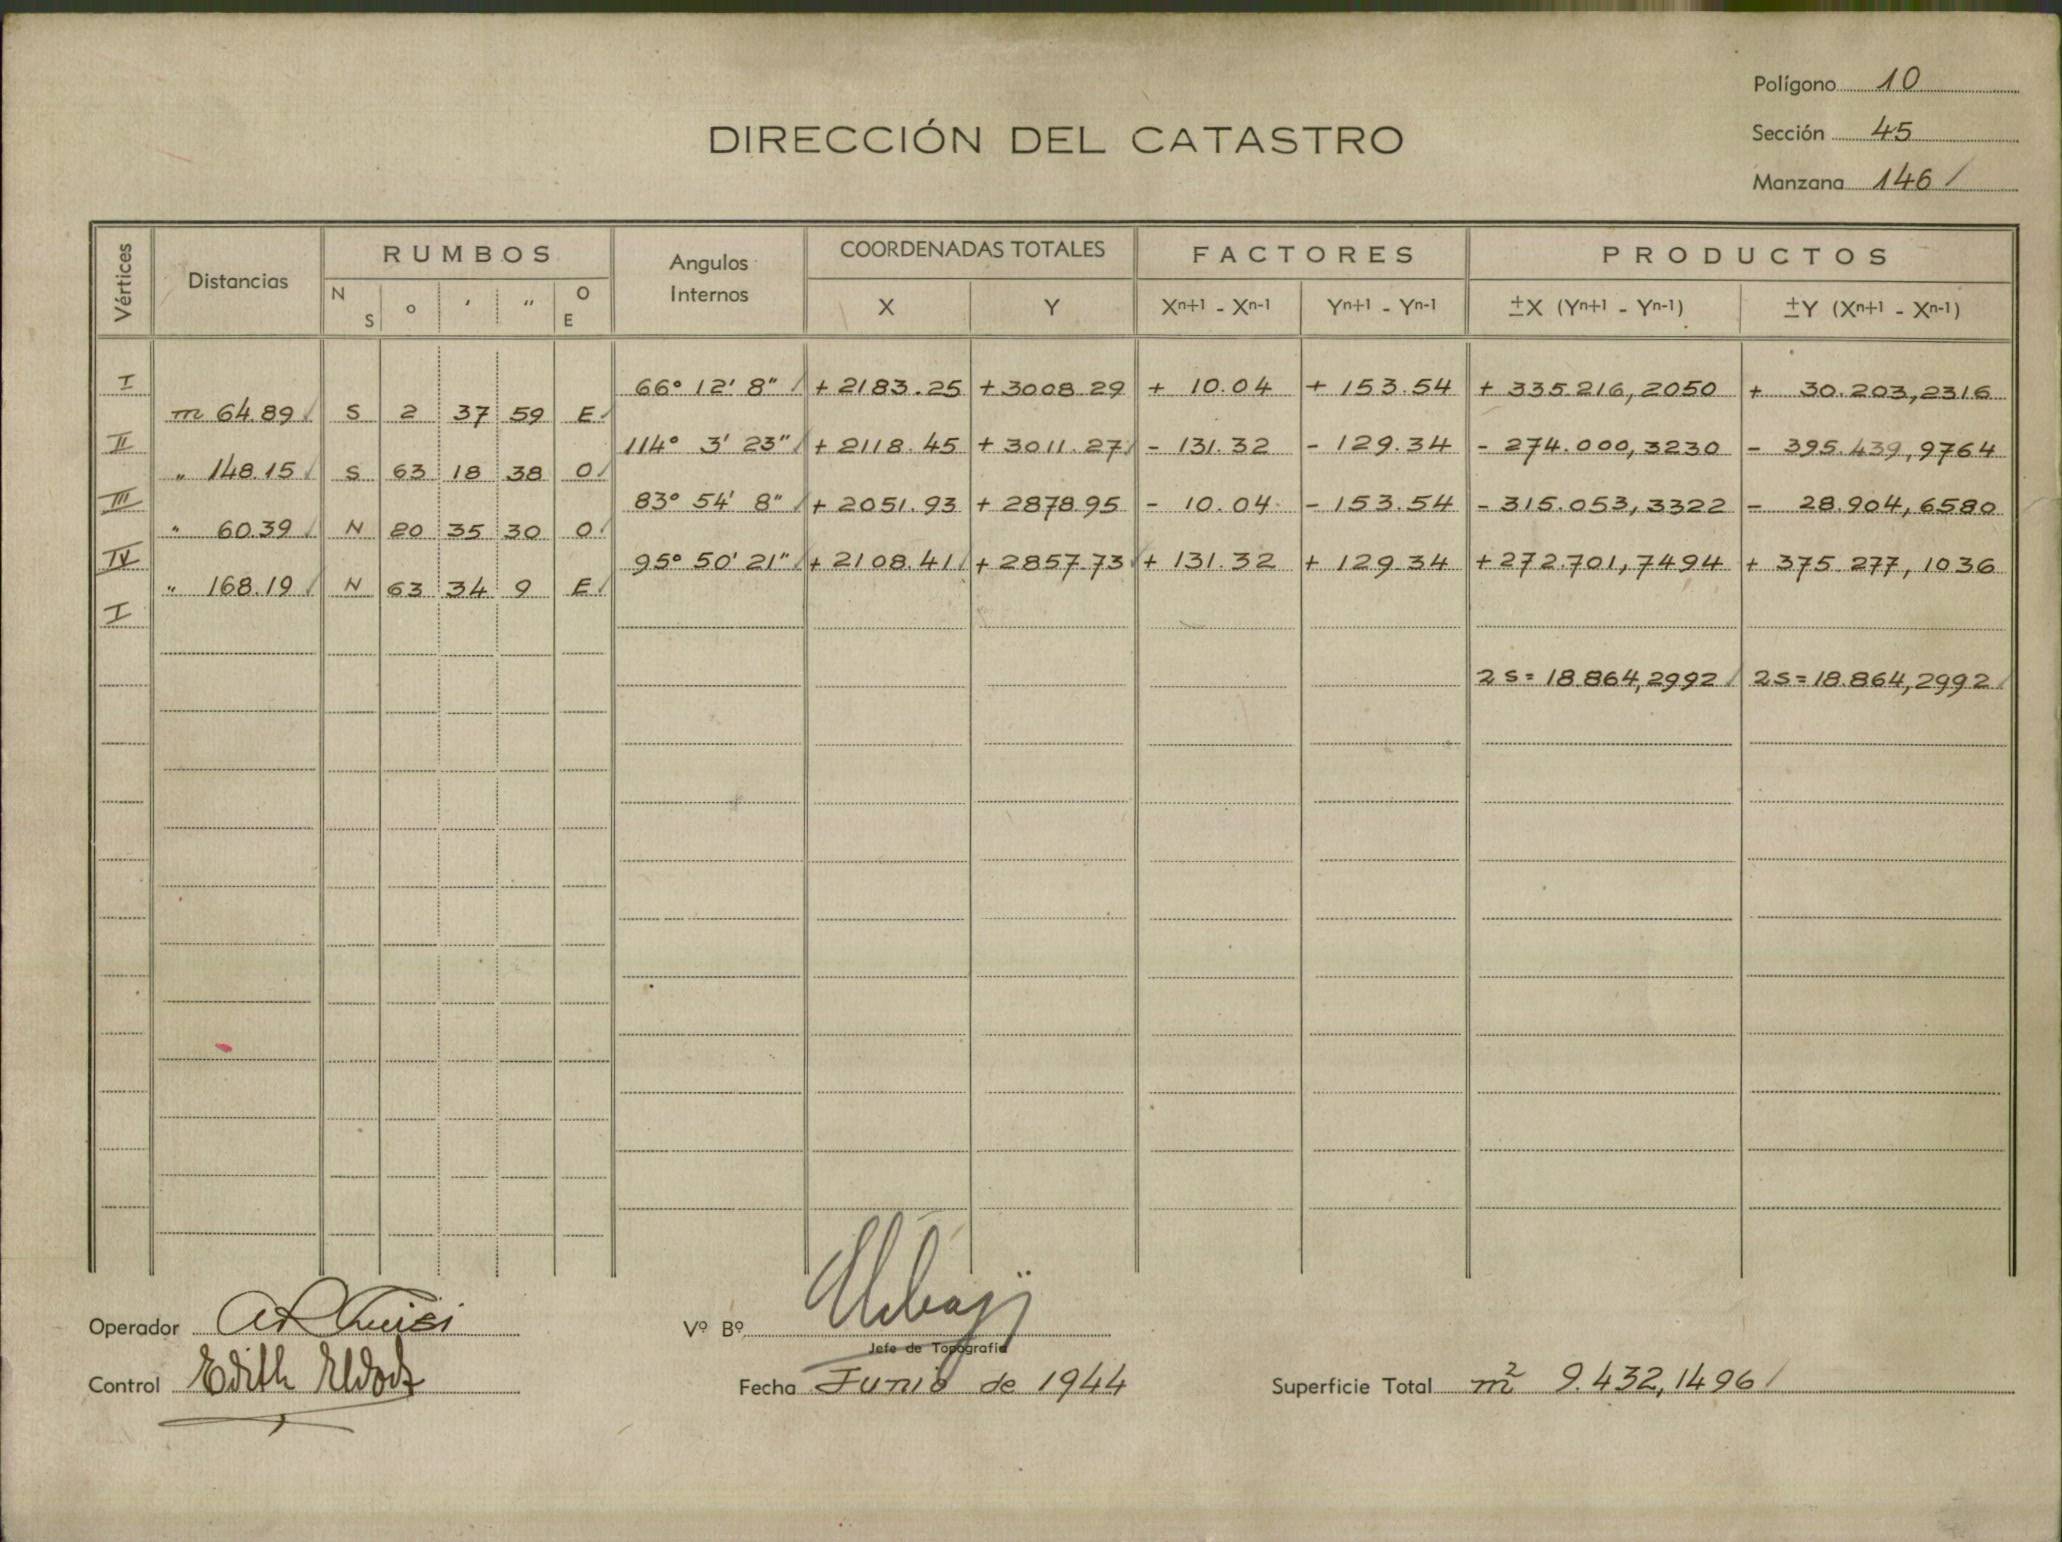 Polígono 10
DIRECCIÓN DEL CATASTRO
Sección 45
Manzana 146
Vértices Distancias RUMBOS Angulos Internos COORDENADAS TOTALES FACTORES PRODUCTOS
N S ° ' " O E X Y Xn+1 - Xn-1 Yn+1 - Yn-1 ±X (Yn+1 - Yn-1) ±Y (Xn+1 - Xn-1)
I 66° 12' 8" + 2183.25 + 3008.29 + 10.04 + 153.54 + 335.216,2050 + 30.203,2316
m 64.89 S 2 37 59 E
II 114° 3' 23" + 2118.45 + 3011.27 - 131.32 - 129.34 - 274.000,3230 - 395.439,9764
" 148.15 S 63 18 38 O
III 83° 54' 8" + 2051.93 + 2878.95 - 10.04 - 153.54 - 315.053,3322 - 28.904,6580
" 60.39 N 20 35 30 O
IV 95° 50' 21" + 2108.41 + 2857.73 + 131.32 + 129.34 + 272.701,7494 + 375.277,1036
" 168.19 N 63 34 9 E
I
2S = 18.864,2992 2S = 18.864,2992
Operador
Vº Bº
Jefe de Topografía
Control Edith
Fecha Junio de 1944
Superficie Total m² 9.432,1496